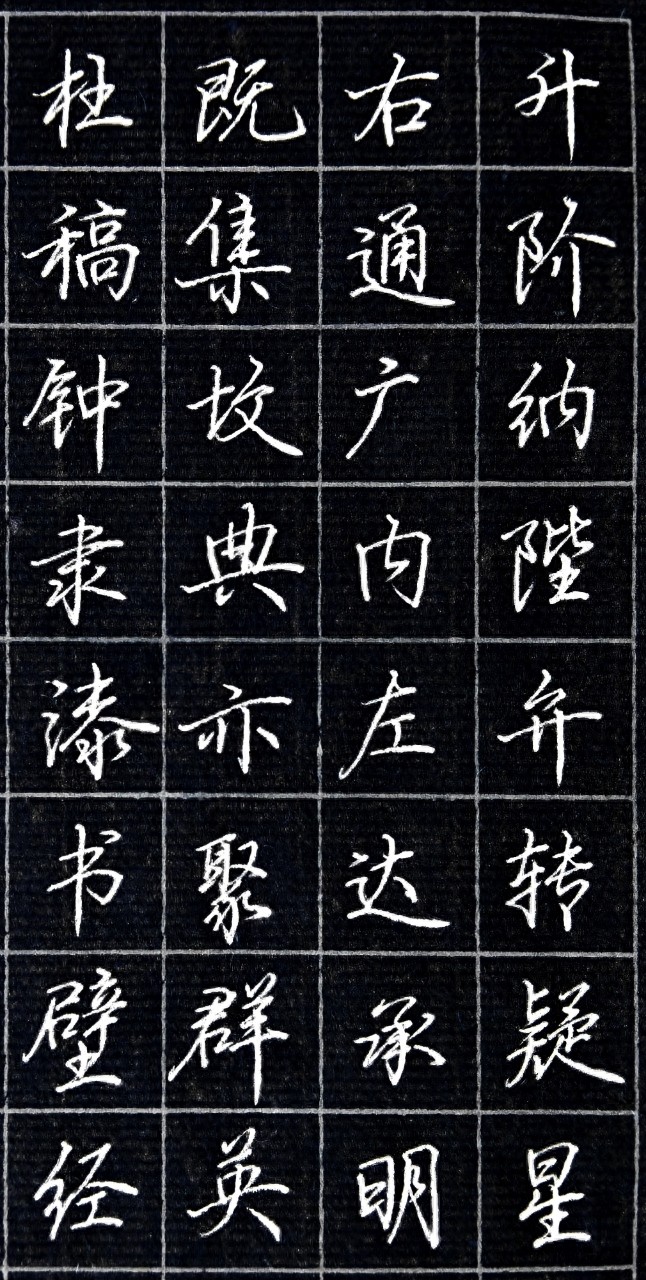 升阶纳陛弁转疑星
右通广内左达承明
既集坟典亦聚群英
杜稿钟隶漆书壁经